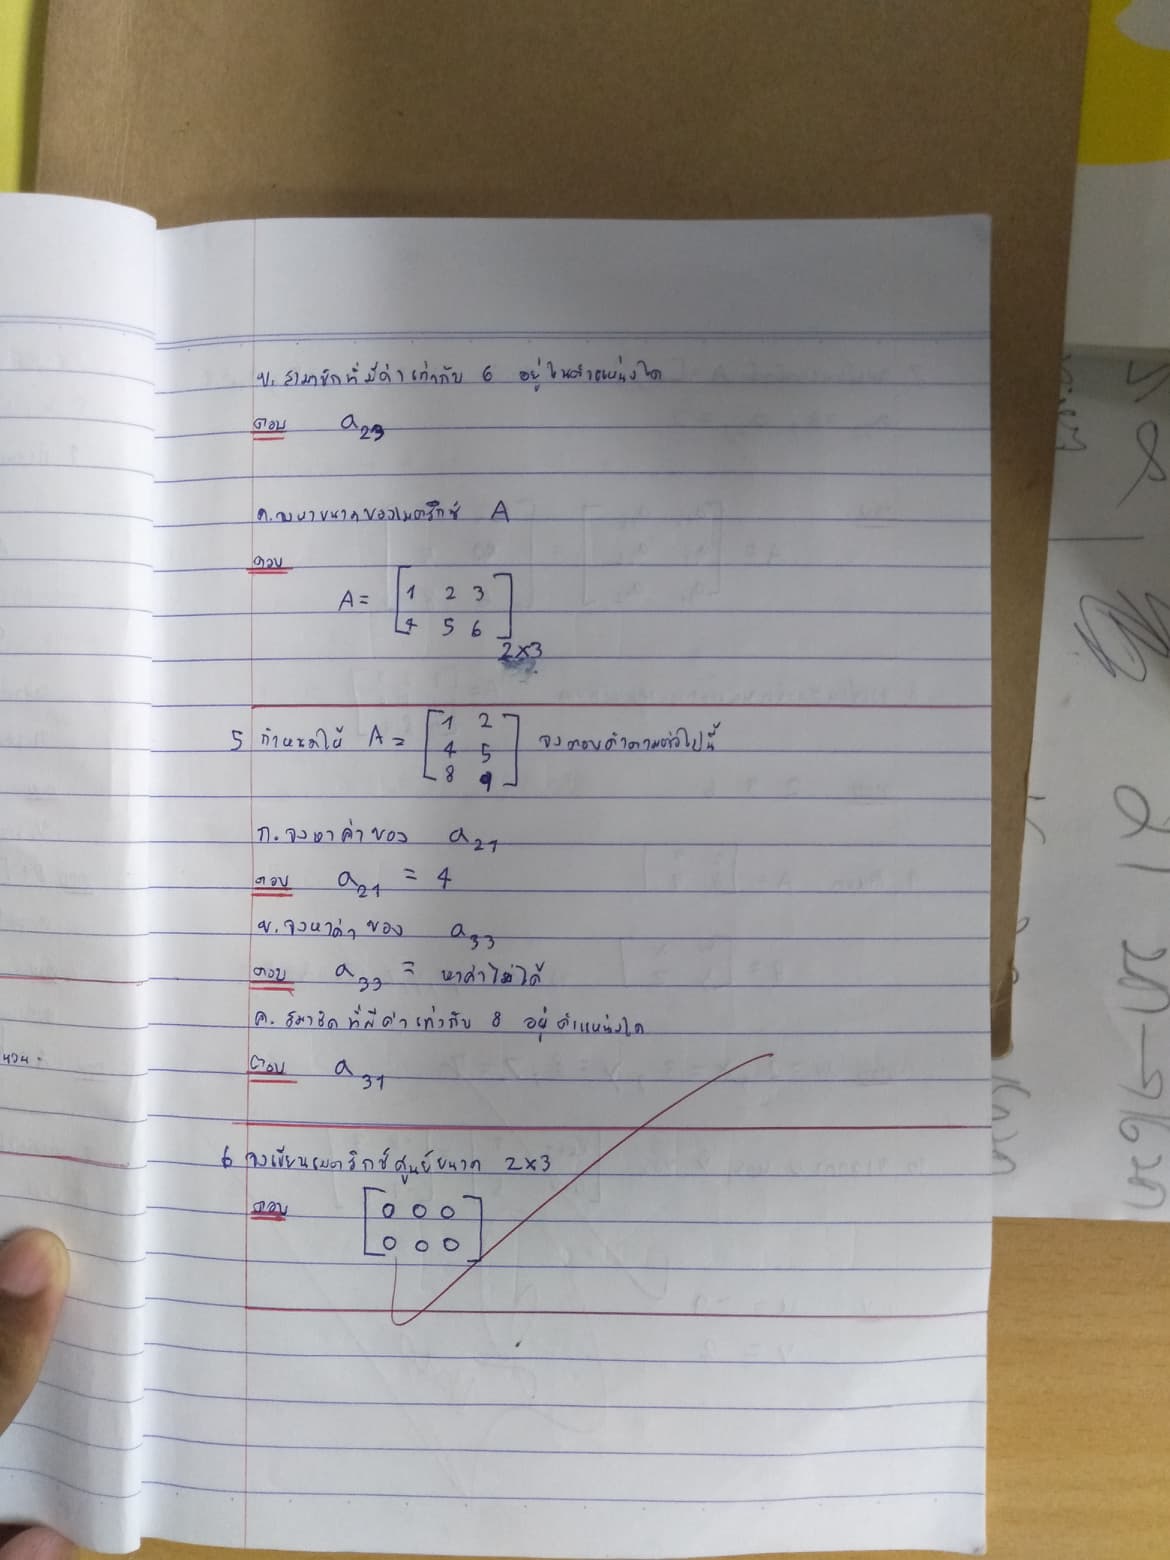 ข. สมาชิกที่มีค่าเท่ากับ 6 อยู่ในตำแหน่งใด
ตอบ a23
ค. จงหาขนาดของเมตริกซ์ A
ตอบ
A = [1 2 3
4 5 6] 2×3
5 กำหนดให้ A = [1 2
4 5
8 9] จงตอบคำถามต่อไปนี้
ก. จงหาค่าของ a21
ตอบ a21 = 4
ข. จงหาค่าของ a33
ตอบ a33 = หาค่าไม่ได้
ค. สมาชิกที่มีค่าเท่ากับ 8 อยู่ตำแหน่งใด
ตอบ a31
6 จงเขียนเมตริกซ์ศูนย์ขนาด 2×3
ตอบ [0 0 0
0 0 0]